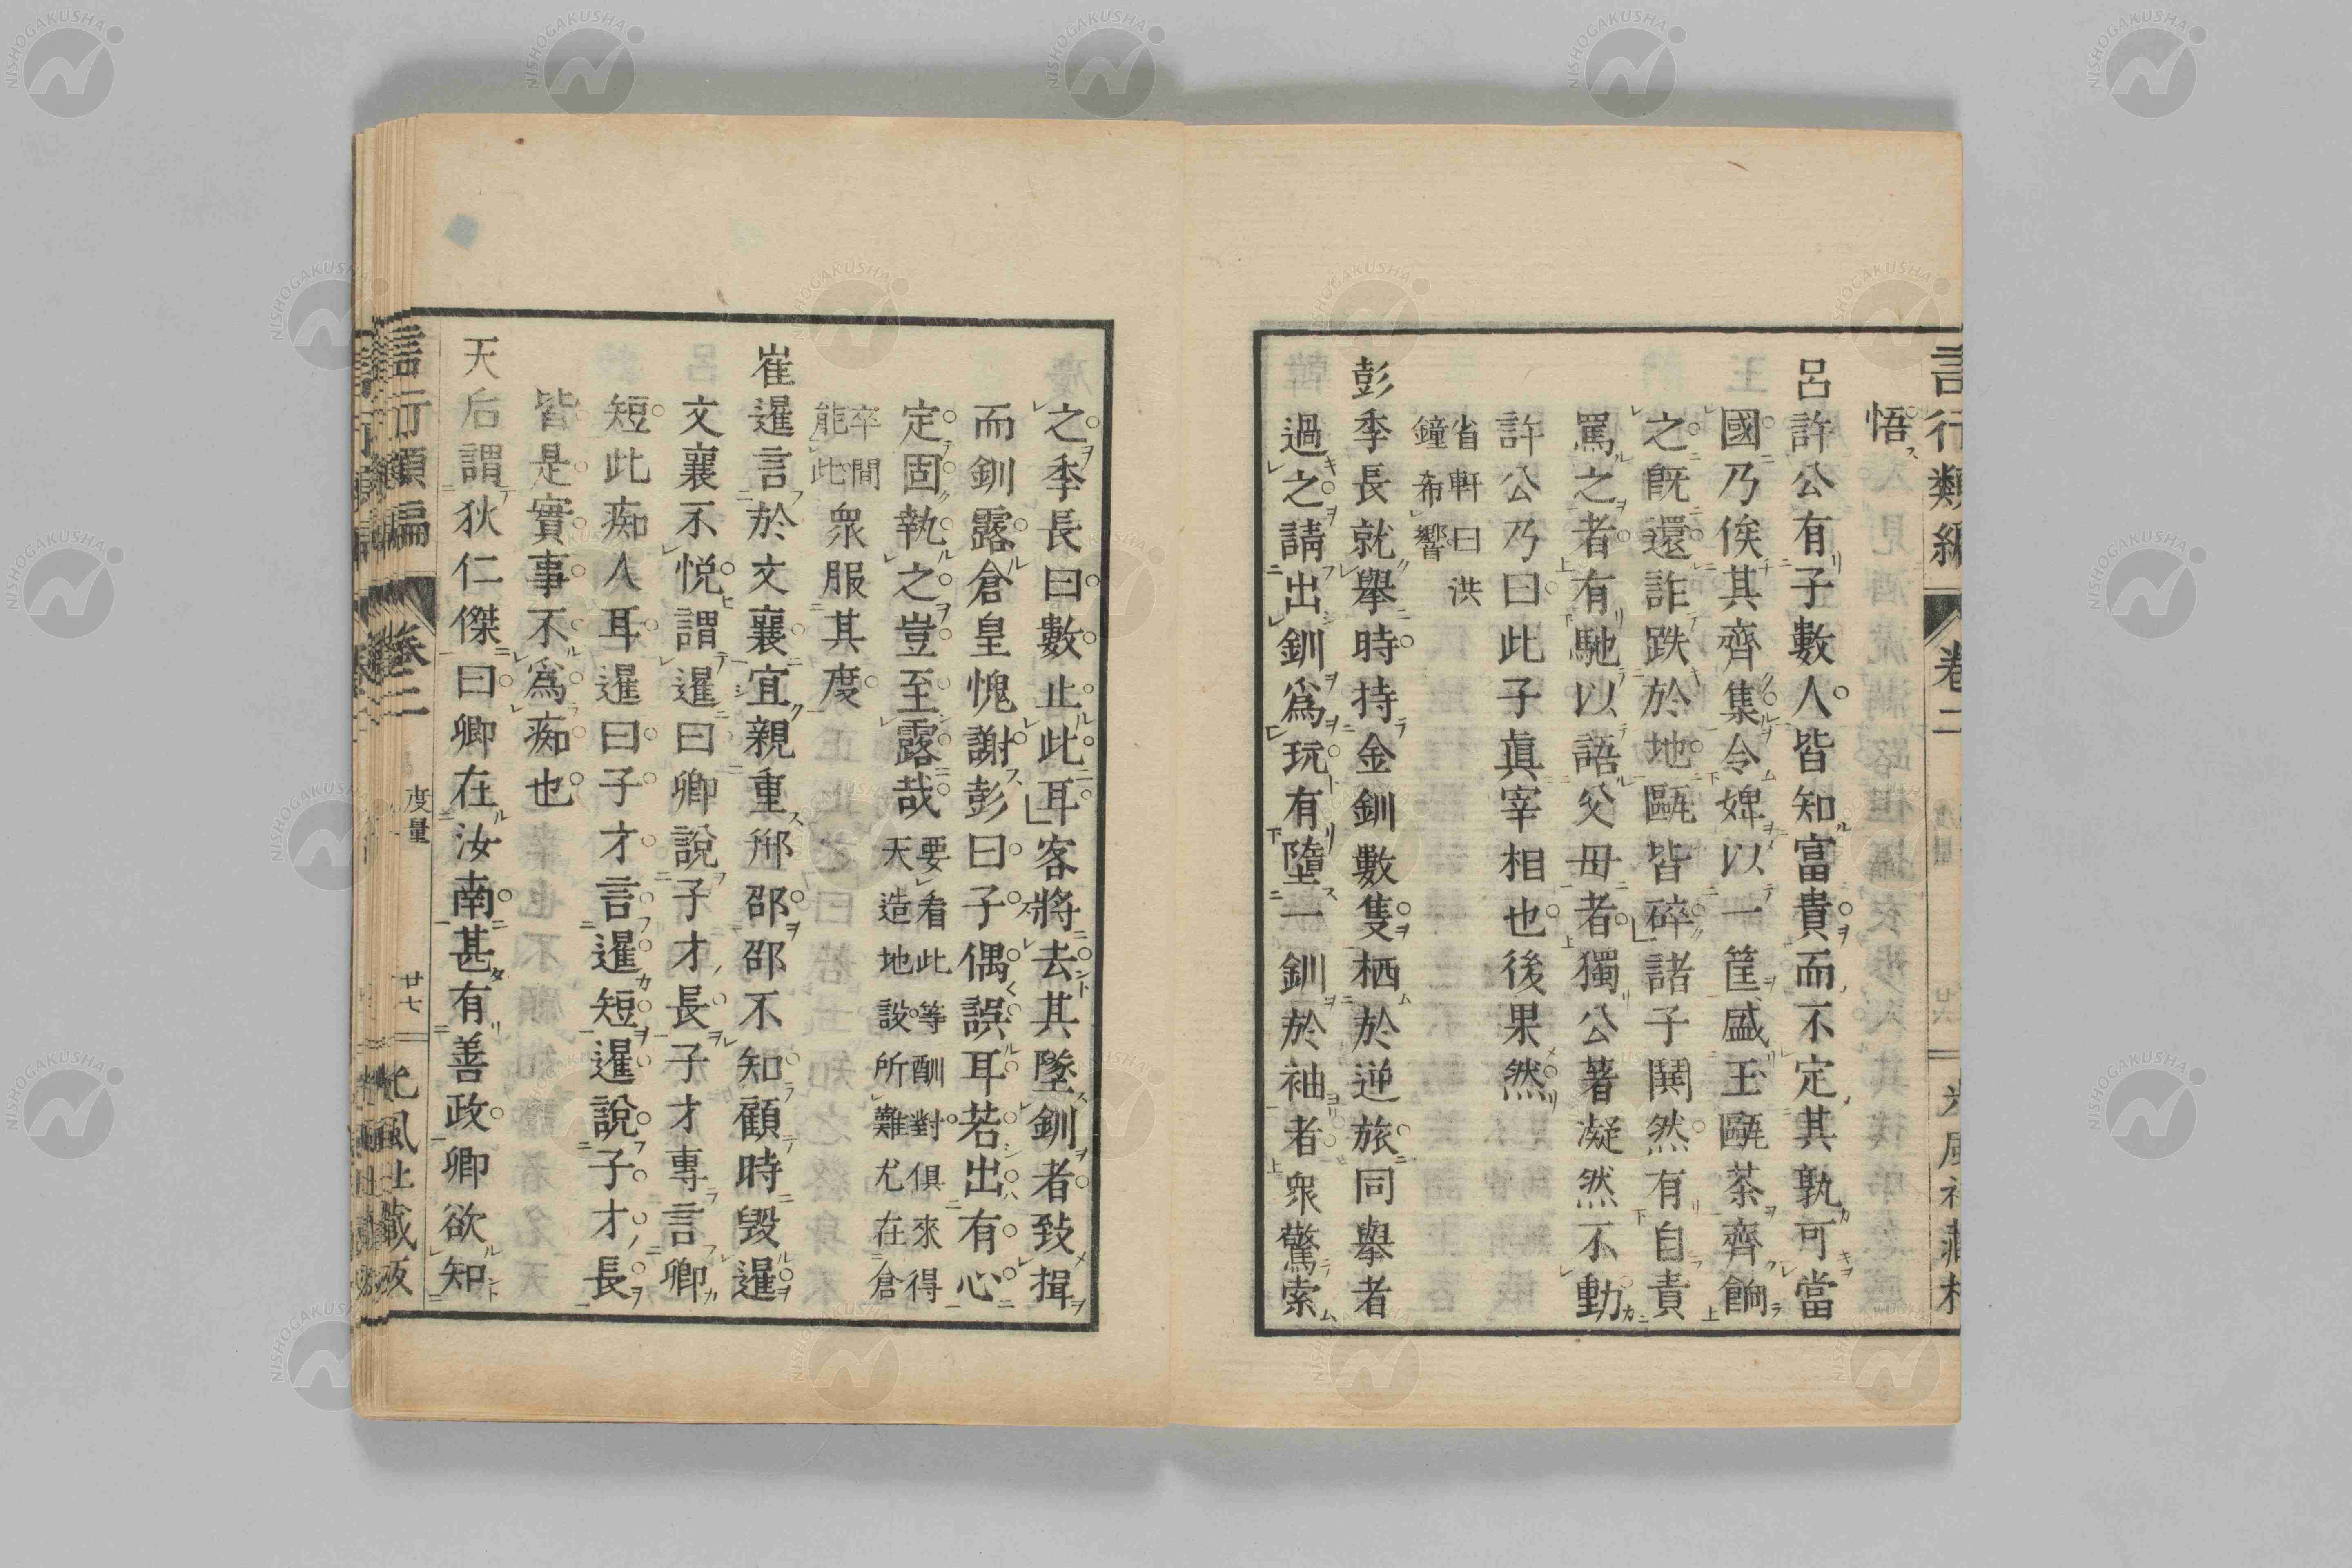 言行類編
卷二
悟
呂許公有子數人皆知富貴而不定其孰可當
國乃俟其齊集令婢以一筐盛玉甌茶齊餉
之旣還詐跌於地甌皆碎諸子鬨然有自責
罵之者有馳以語父母者獨公著凝然不動
許公乃曰此子眞宰相也後果然
省軒曰洪
鐘希響
彭季長就擧時持金釧數隻栖於逆旅同擧者
過之請出釧爲玩有墮一釧於袖者衆驚索
之季長曰數止此耳客將去其墜釧者致揖
而釧露倉皇愧謝彭曰子偶誤耳若出有心
定固執之豈至露哉
要看此等酬對俱來得
天造地設所難尤在倉
卒間
能此
衆服其度
崔暹言於文襄宜親重邢邵邵不知顧時毀暹
文襄不悦謂暹曰卿說子才長子才專言卿
短此痴人耳暹曰子才言暹短暹說子才長
皆是實事不爲痴也
天后謂狄仁傑曰卿在汝南甚有善政卿欲知
言行類編
卷二
度量
廿七
光風社藏板
NISHOGAKUSHA